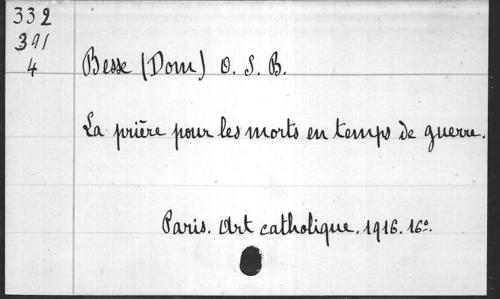 332
391
4
Besse (Dom) O. S. B.
La prière pour les morts en temps de guerre.
Paris. Art catholique. 1916. 16o.